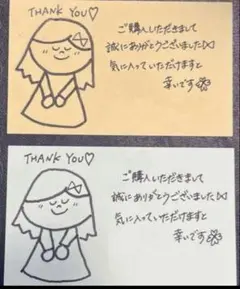 THANK YOU♡
ご購入いただきまして
誠にありがとうございました⋈
気に入っていただけますと
幸いです
THANK YOU♡
ご購入いただきまして
誠にありがとうございました⋈
気に入っていただけますと
幸いです